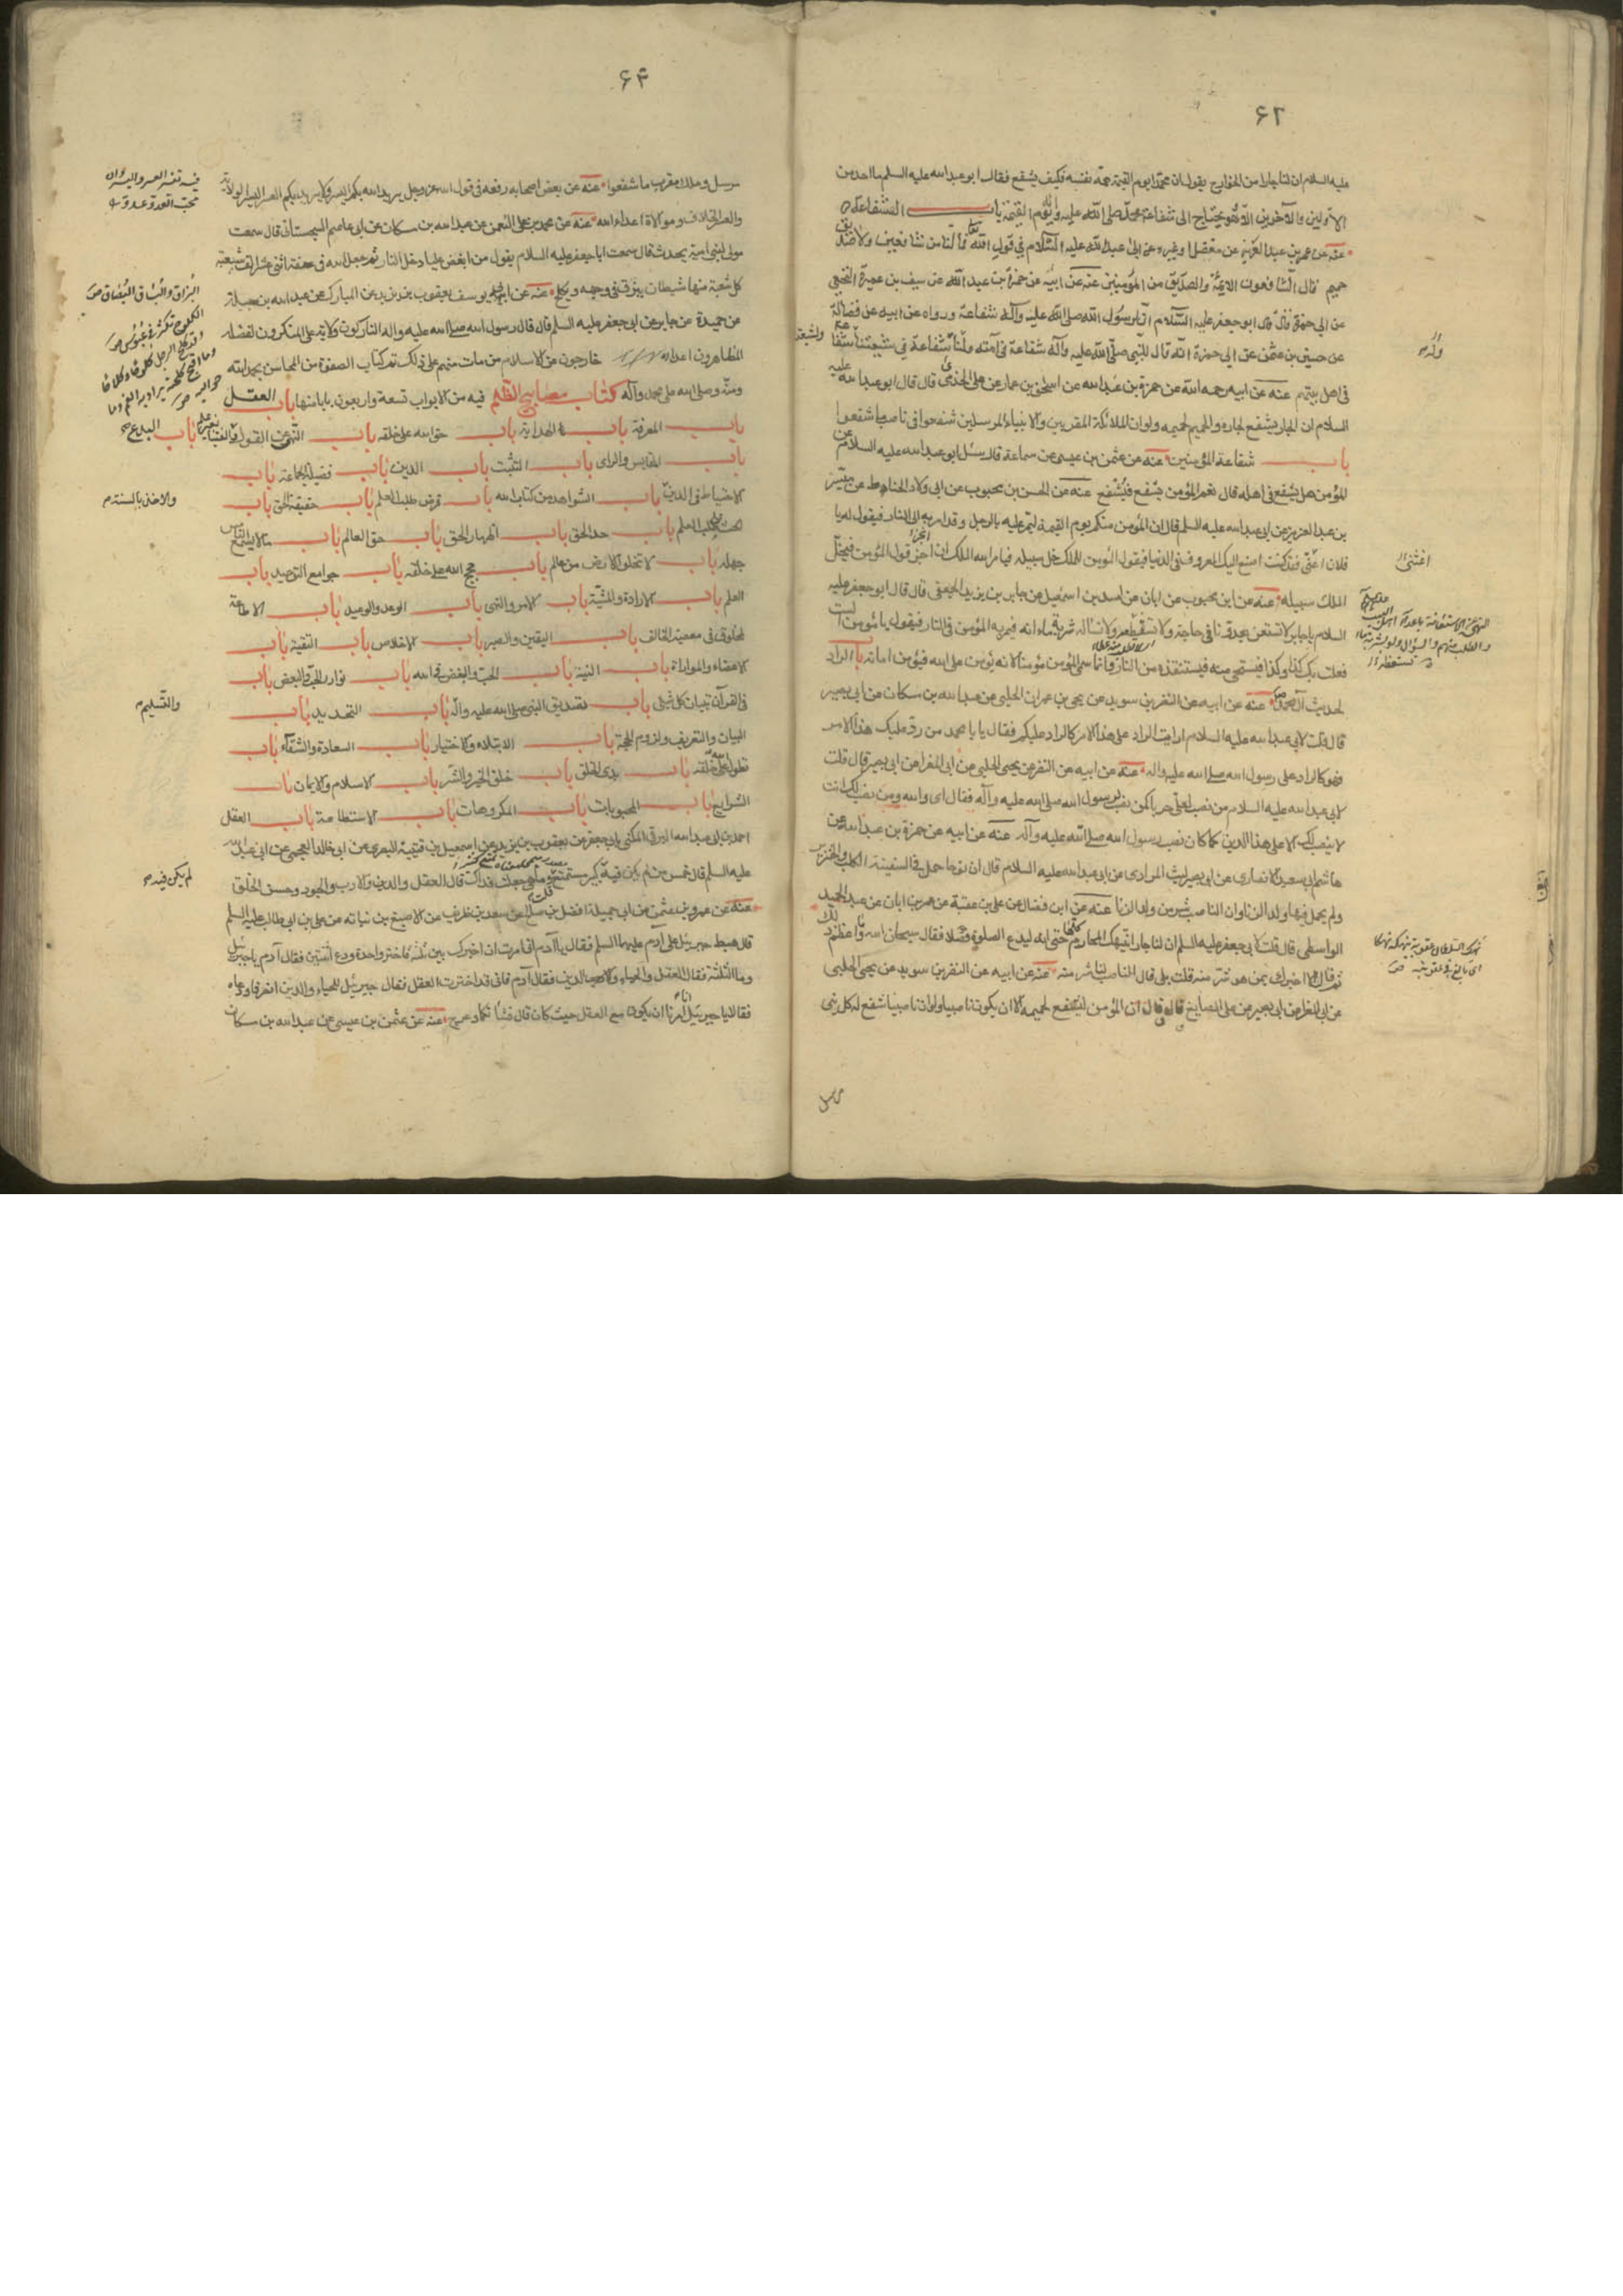 ۶۲
عليه السلام ان لنا جارا من الخوارج يقول ان محمدا يوم القيمة همه نفسه فكيف يشفع فقال ابو عبد الله عليه السلم ما احد من
الاولين والآخرين الا وهو يحتاج الى شفاعة محمد صلى الله عليه وآله يوم القيمة باب الشفاعة
عنه عن عمر بن عبد العزيز عن مفضل او غيره عن ابى عبد الله عليه السلام في قول الله تعالى فما لنا من شافعين ولا صديق
حميم قال الشافعون الائمة والصديق من المؤمنين عنه عن ابيه عن حمزة بن عبد الله عن سيف بن عميرة النخعي
عن ابي حمزة قال قال ابو جعفر عليه السلام ان لرسول الله صلى الله عليه وآله شفاعة ورواه عن ابيه عن فضالة
عن حسين بن عثمن عن ابي حمزة انه قال للنبي صلى الله عليه وآله شفاعة في امته ولنا شفاعة في شيعتنا ولشيعتنا شفاعة
في اهل بيتهم عنه عن ابيه رحمه الله عن حمزة بن عبد الله عن اسحق بن عمار عن علي الخدمي قال قال ابو عبد الله عليه
السلام ان الجار يشفع لجاره والحميم لحميمه ولو ان الملائكة المقربين والانبياء المرسلين شفعوا في ناصب ما شفعوا
باب شفاعة المؤمنين عنه عن عثمن بن عيسى عن سماعة قال سئل ابو عبد الله عليه السلام عن
المؤمن هل يشفع في اهله قال نعم المؤمن يشفع فيشفع عنه عن الحسن بن محبوب عن ابى ولاد الحناط عن ميسر
بن عبد العزيز عن ابى عبد الله عليه السلم قال ان المؤمن منكم يوم القيمة ليمر عليه بالرجل وقد امر به الى النار فيقول له يا
فلان اغثني فقد كنت اصنع اليك المعروف في الدنيا فيقول المؤمن للملك خل سبيله فيامر الله الملك ان اجز قول المؤمن فيخلى
الملك سبيله عنه عن ابن محبوب عن ابان عن اسد بن اسمعيل عن جابر بن يزيد الجعفى قال قال ابو جعفر عليه
السلام يا جابر لا تستعن بعدونا في حاجة ولا تستطعمه ولا تسأله شربة ماء انه ليمر به المؤمن في النار فيقول يا مؤمن الست
فعلت بك كذا وكذا فيستحى منه فيستنقذه من النار وانما سمى المؤمن مؤمنا لانه يؤمن على الله فيؤمن امانه باب الراد
لحديث آل محمد عنه عن ابيه عن النضر بن سويد عن يحيى بن عمران الحلبى عن عبد الله بن مسكان عن ابى بصير
قال قلت لابى عبد الله عليه السلام ارايت الراد على هذا الامر كالراد عليكم فقال يا با محمد من رد عليك هذا الامر
فهو كالراد على رسول الله صلى الله عليه واله عنه عن ابيه عن النضر عن يحيى الحلبى عن ابى المغرا عن ابى بصير قال قلت
لابى عبد الله عليه السلام من نصب لعلى حربا كمن نصب لرسول الله صلى الله عليه وآله فقال اى والله ومن نصب لك انت
لا ينصب لك الا على هذا الدين كما كان نصب لرسول الله صلى الله عليه وآله عنه عن ابيه عن حمزة بن عبد الله عن
هاشم ابى سعيد الانصارى عن ابى بصير ليث المرادى عن ابى عبد الله عليه السلام قال ان نوحا حمل في السفينة الكلب والخنزير
ولم يحمل فيها ولد الزنا وان الناصب شر من ولد الزنا عنه عن ابن فضال عن على بن عقبة عن عمر بن ابان عن عبد الحميد
الواسطى قال قلت لابى جعفر عليه السلم ان لنا جارا ينتهك المحارم كلها حتى انه ليدع الصلوة فضلا فقال سبحان الله واعظم ذلك
ثم قال الا اخبرك بمن هو شر منه قلت بلى قال الناصب لنا شر منه عنه عن ابيه عن النضر بن سويد عن يحيى الحلبى
عن ابى المغرا عن ابى بصير عن على الصايغ قال قال ان المؤمن ليشفع لحميمه الا ان يكون ناصبيا ولو ان ناصبيا شفع له كل نبى
ولشيعتنا
اغثنى
النهى عن الاستعانة باعداء اهل البيت عليهم
والطلب منهم والسؤال ولو شربة ماء
نهكه السلطان عقوبة ينهكه نهكا
اى بالغ في عقوبته ص
مرسل
۶۳
مرسل وملك مقرب ما شفعوا عنه عن بعض اصحابه رفعه في قول الله عز وجل يريد الله بكم اليسر ولا يريد بكم العسر اليسر الولاية
والعسر الخلاف وموالاة اعداء الله عنه عن محمد بن على النعمن عن عبد الله بن مسكان عن ابى عاصم السجستانى قال سمعت
مولى لبنى امية يحدث قال سمعت ابا جعفر عليه السلام يقول من ابغض عليا دخل النار ثم جعل الله في عنقه اثنى عشر الف شعبة
كل شعبة منها شيطان يبزق في وجهه ويكلح عنه عن ابى يوسف يعقوب بن يزيد عن المبارك عن عبد الله بن جبلة
عن حميدة عن جابر عن ابى جعفر عليه السلم قال قال رسول الله صلى الله عليه واله التاركون ولاية على المنكرون لفضله
المظاهرون اعداءه خارجون عن الاسلام من مات منهم على ذلك تم كتاب الصفوة من المحاسن بحمد الله
ومنه وصلى الله على محمد وآله كتاب مصابيح الظلم فيه من الابواب تسعة واربعون بابا منها باب العقل
باب المعرفة باب الهداية باب حق الله على خلقه باب النهى عن القول والفتيا بغير علم باب البدع
باب المقاييس والراى باب التثبت باب الدين باب فضيلة الجماعة باب
الاحتياط في الدين باب الشواهد من كتاب الله باب فرض طلب العلم باب حقيقة الحق باب
الحث على طلب العلم باب حد الحق باب اظهار الحق باب حق العالم باب ما لا يسع الناس
جهله باب لا تخلو الارض من عالم باب حجج الله على خلقه باب جوامع التوحيد باب
العلم باب الارادة والمشية باب الامر والنهى باب الوعد والوعيد باب لا طاعة
لمخلوق في معصية الخالق باب اليقين والصبر باب الاخلاص باب التقية باب
الاغضاء والمداراة باب النية باب الحب والبغض في الله باب نوادر الحب والبغض باب
في القرآن تبيان كل شئ باب تصديق النبى صلى الله عليه وآله باب التحديد باب
البيان والتعريف ولزوم الحجة باب الابتلاء والاختبار باب السعادة والشقاء باب
تطول الله على خلقه باب بدء الخلق باب خلق الخير والشر باب الاسلام والايمان باب
الشرايع باب المحبوبات باب المكروهات باب الاستطاعة باب العقل
احمد بن ابى عبد الله البرقى المكنى بابى جعفر عن يعقوب بن يزيد عن اسمعيل بن قتيبة البصرى عن ابى خالد العجمى عن ابى عبد الله
عليه السلم قال خمس من لم يكن فيه كثير مستمتع قلت وما هى جعلت فداك قال العقل والدين والادب والجود وحسن الخلق
عنه عن عمرو بن عثمن عن ابى جميلة المفضل بن صالح عن سعد بن طريف عن الاصبغ بن نباته عن على بن ابى طالب عليه السلم
قال هبط جبرئيل على آدم عليهما السلم فقال يا آدم انى امرت ان اخيرك بين ثلثة فاختر واحدة ودع اثنتين فقال آدم يا جبرئيل
وما الثلثة فقال العقل والحياء والدين فقال آدم فانى قد اخترت العقل فقال جبرئيل للحياء والدين انصرفا ودعاه
فقالا يا جبرئيل انا امرنا ان نكون مع العقل حيث كان قال فشأنكما وعرج عنه عن عثمن بن عيسى عن عبد الله بن مسكان
فيه تفسير العسر واليسر وان
محب اعدو عدوه
البزاق والبساق البصاق ص
الكلوح تكشر في عبوس ص
والاخذ بالسنة
والتسليم
لم يكن فيه